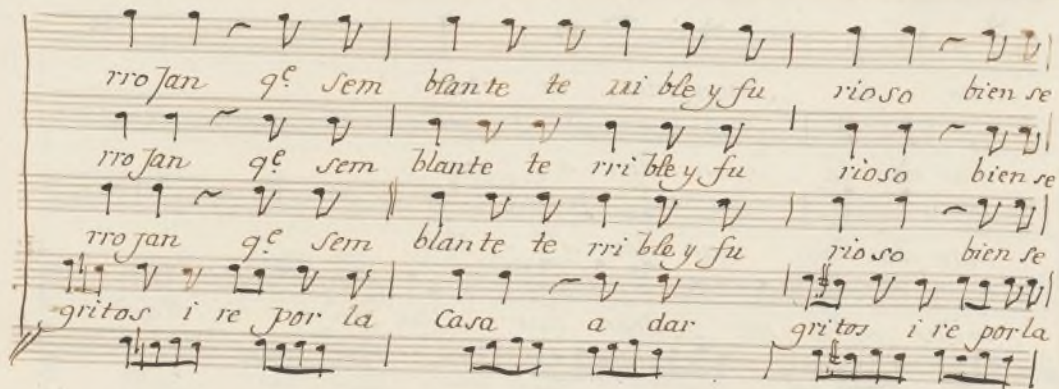 rro Jan qᵉ. sem blante te rri ble y fu rioso bien se
rro Jan qᵉ. sem blante te rri ble y fu rioso bien se
rro Jan qᵉ sem blante te rri ble y fu rioso bien se
gritos i re por la Casa a dar gritos i re por la